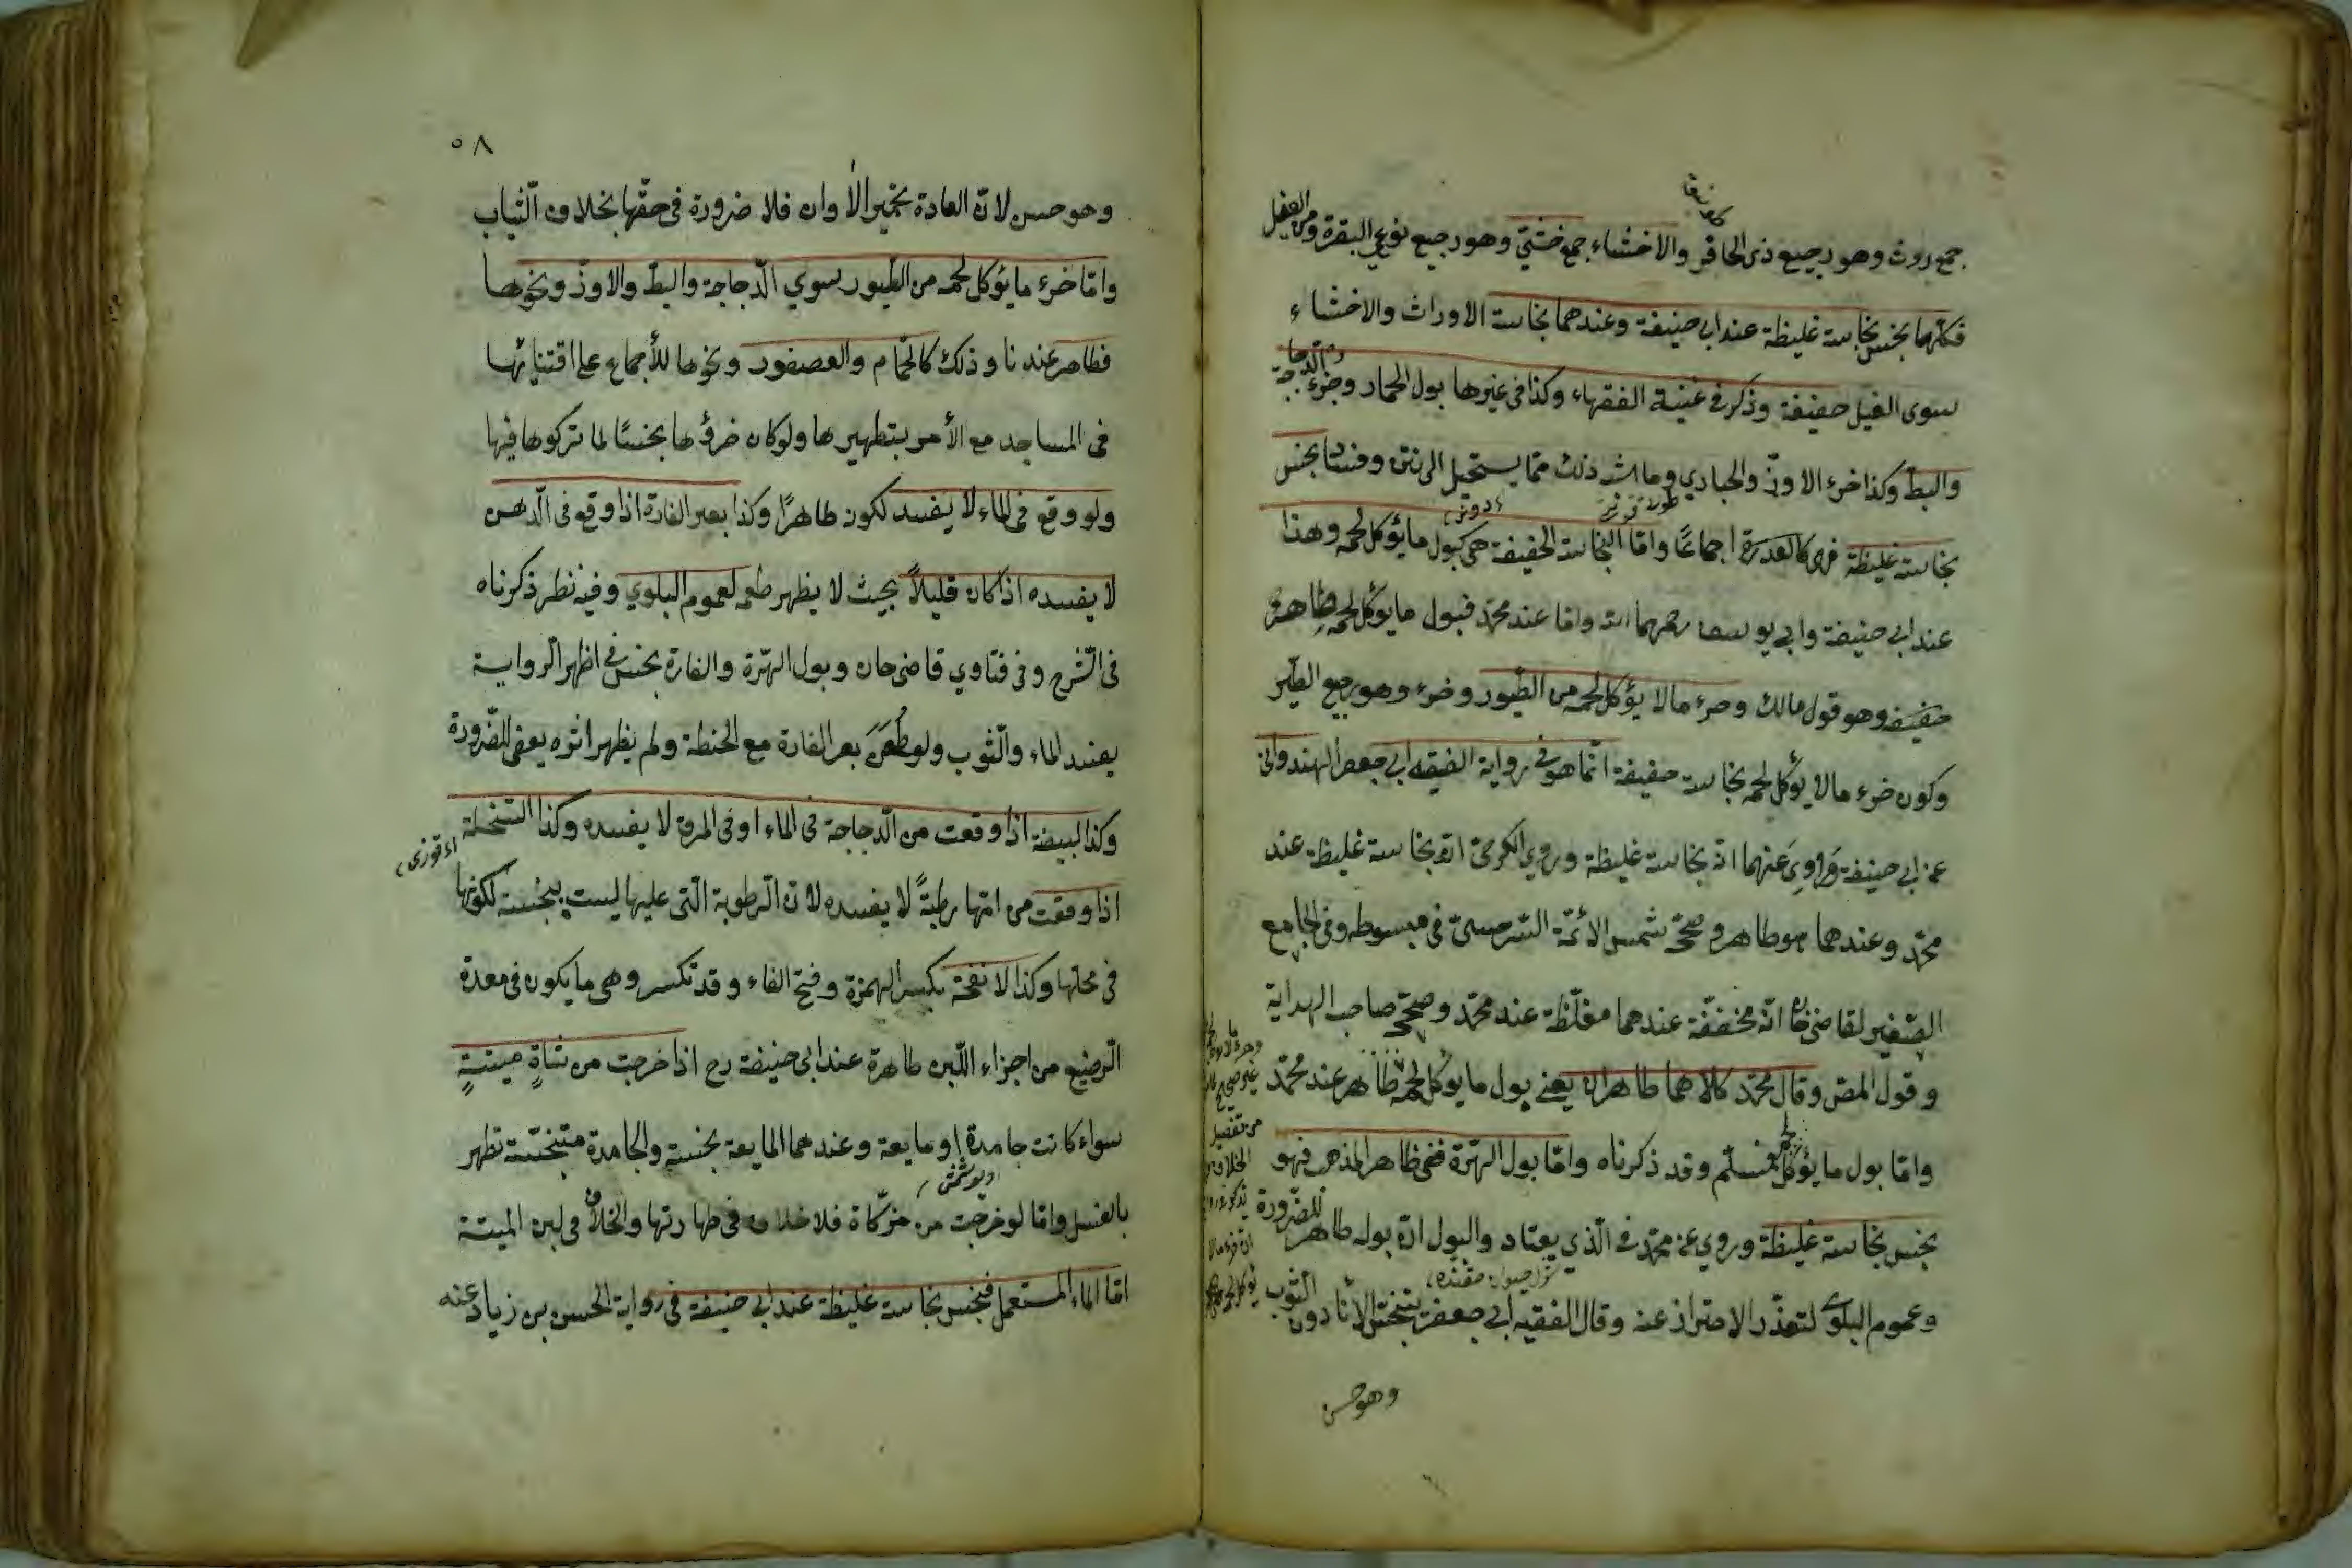 جمع روث وهو رجيع ذى الحافر والاخثاء جمع خثي وهو رجيع نوعي البقرة ومن الفيل
فكلها نجس نجاسة غليظة عند ابي حنيفة وعندهما نجاسة الاوراث والاخثاء
سوى الفيل خفيفة وذكر في غنية الفقهاء وكذا في غيرها بول الحمار وخرء الدجاجة
والبط وكذا خرء الاوز والحبارى وما اشبه ذلك مما يستحيل الى نتن وفساد نجس
نجاسة غليظة فهي كالعذرة اجماعًا واما النجاسة الخفيفة هي كبول ما يؤكل لحمه وهذا
عند ابي حنيفة وابي يوسف رحمهما الله واما عند محمد فبول ما يؤكل لحمه طاهر
خفيفة وهو قول مالك وخرء ما لا يؤكل لحمه من الطيور وخرء وهو رجيع الطير
وكون خرء ما لا يؤكل لحمه نجاسة خفيفة انما هو في رواية الفقيه ابي جعفر الهندواني
عن ابي حنيفة وروي عنهما انه نجاسة غليظة وروي الكرخي انه نجاسة غليظة عند
محمد وعندهما هو طاهر وصححه شمس الائمة السرخسي في مبسوطه وفى الجامع
الصغير لقاضى خان انه مخففة عندهما مغلظة عند محمد وصححه صاحب الهداية
وقول المص وقال محمد كلاهما طاهران يعني بول ما يؤكل لحمه طاهر عند محمد
واما بول ما يؤكل لحمه فمسلم وقد ذكرناه واما بول الهرة ففى ظاهر المذهب فهو
نجس نجاسة غليظة وروي عن محمد في الذي يعتاد والبول ان بوله طاهر للضرورة
وعموم البلوى لتعذر الاحتراز عنه وقال الفقيه ابي جعفر يتنجس الاناء دون الثوب
وهو حسن
٥٨
وهو حسن لان العادة تخمير الأوان فلا ضرورة فى حقها بخلاف الثياب
واما خرء ما يؤكل لحمه من الطيور سوي الدجاجة والبط والاوز ونحوها
فطاهر عندنا وذلك كالحمام والعصفور ونحوها للأجماع على اقتنائها
فى المساجد مع الأمر بتطهيرها ولو كان خرؤها نجسًا لما تركوها فيها
ولو وقع فى الماء لا يفسد لكون طاهرًا وكذا بعر الفارة اذا وقع فى الدهن
لا يفسده اذ كان قليلاً بحيث لا يظهر طعمه لعموم البلوي وفيه نظر ذكرناه
فى الشرح وفى فتاوي قاضى خان وبول الهرة والفارة نجس في اظهر الرواية
يفسد الماء والثوب ولو طُحن بعر الفارة مع الحنطة ولم يظهر اثره يعفى للضرورة
وكذا البيضة اذا وقعت من الدجاجة فى الماء او فى المرق لا يفسده وكذا السخلة
اذا وقعت من امها رطبةً لا يفسده لان الرطوبة التى عليها ليست بنجسة لكونها
فى محلها وكذا الانفحة بكسر الهمزة وفتح الفاء وقد تكسر وهى ما يكون فى معدة
الرضيع من اجزاء اللبن طاهرة عند ابى حنيفة رح اذا خرجت من شاةٍ ميتةٍ
سواء كانت جامدة او مايعة وعندهما المايعة نجسة والجامدة متنجسة تطهر
بالغسل واما لو خرجت من مزكاة فلا خلاف فى طهارتها والخلاف فى لبن الميتة
اما الماء المستعمل فنجس نجاسة غليظة عند ابي حنيفة فى رواية الحسن بن زياد عنه